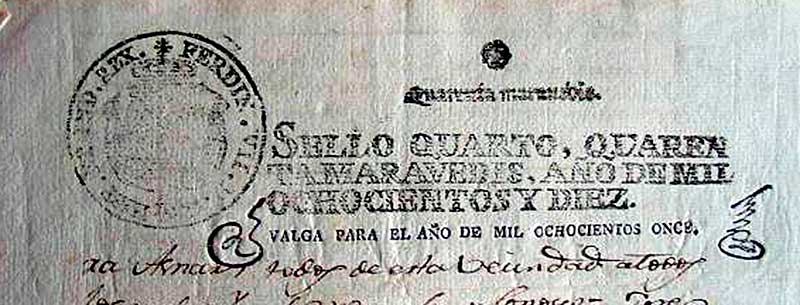 REX. FERDIN. VII.
Quarenta maravedis.
SELLO QUARTO, QUAREN
TAMARAVEDIS, AÑO DE MIL
OCHOCIENTOS Y DIEZ.
VALGA PARA EL AÑO DE MIL OCHOCIENTOS ONCE.
todos de esta vecindad atodos